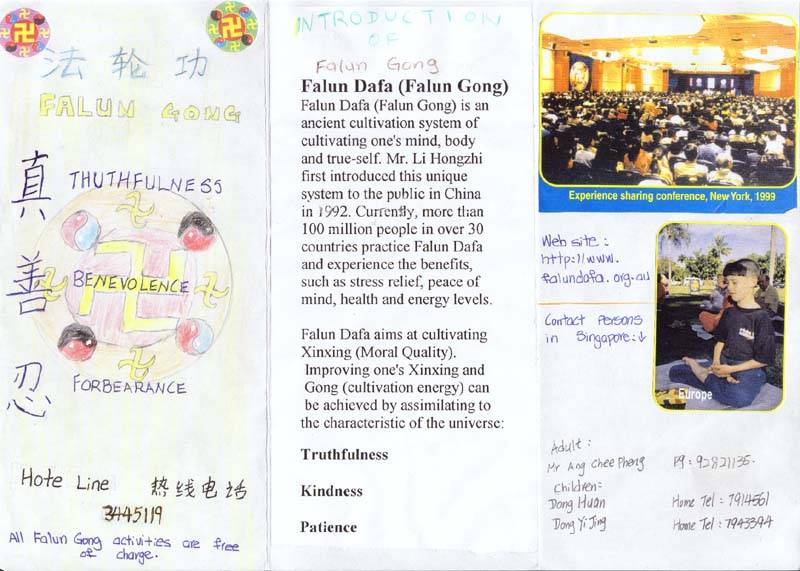 法轮功
FALUN GONG
真 善 忍
THUTHFULNESS
BENEVOLENCE
FORBEARANCE
Hote Line 热线电话
3445119
All Falun Gong activities are free
of charge.
INTRODUCTION
OF
Falun Gong
Falun Dafa (Falun Gong)
Falun Dafa (Falun Gong) is an
ancient cultivation system of
cultivating one's mind, body
and true-self. Mr. Li Hongzhi
first introduced this unique
system to the public in China
in 1992. Currently, more than
100 million people in over 30
countries practice Falun Dafa
and experience the benefits,
such as stress relief, peace of
mind, health and energy levels.
Falun Dafa aims at cultivating
Xinxing (Moral Quality).
Improving one's Xinxing and
Gong (cultivation energy) can
be achieved by assimilating to
the characteristic of the universe:
Truthfulness
Kindness
Patience
Experience sharing conference, New York, 1999
Web site:
http://www.
falundafa.org.au
Contact Persons
in Singapore:↓
Europe
Adult:
Mr Ang Chee Pheng Pg: 92821135.
Children:
Dong Huan Home Tel: 7914561
Dong Yi Jing Home Tel: 7943394